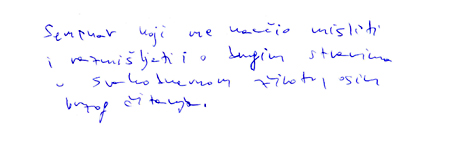 Seminar koji me naučio misliti
i razmišljati i o drugim stvarima
u svakodnevnom životu, osim
brzog čitanja.